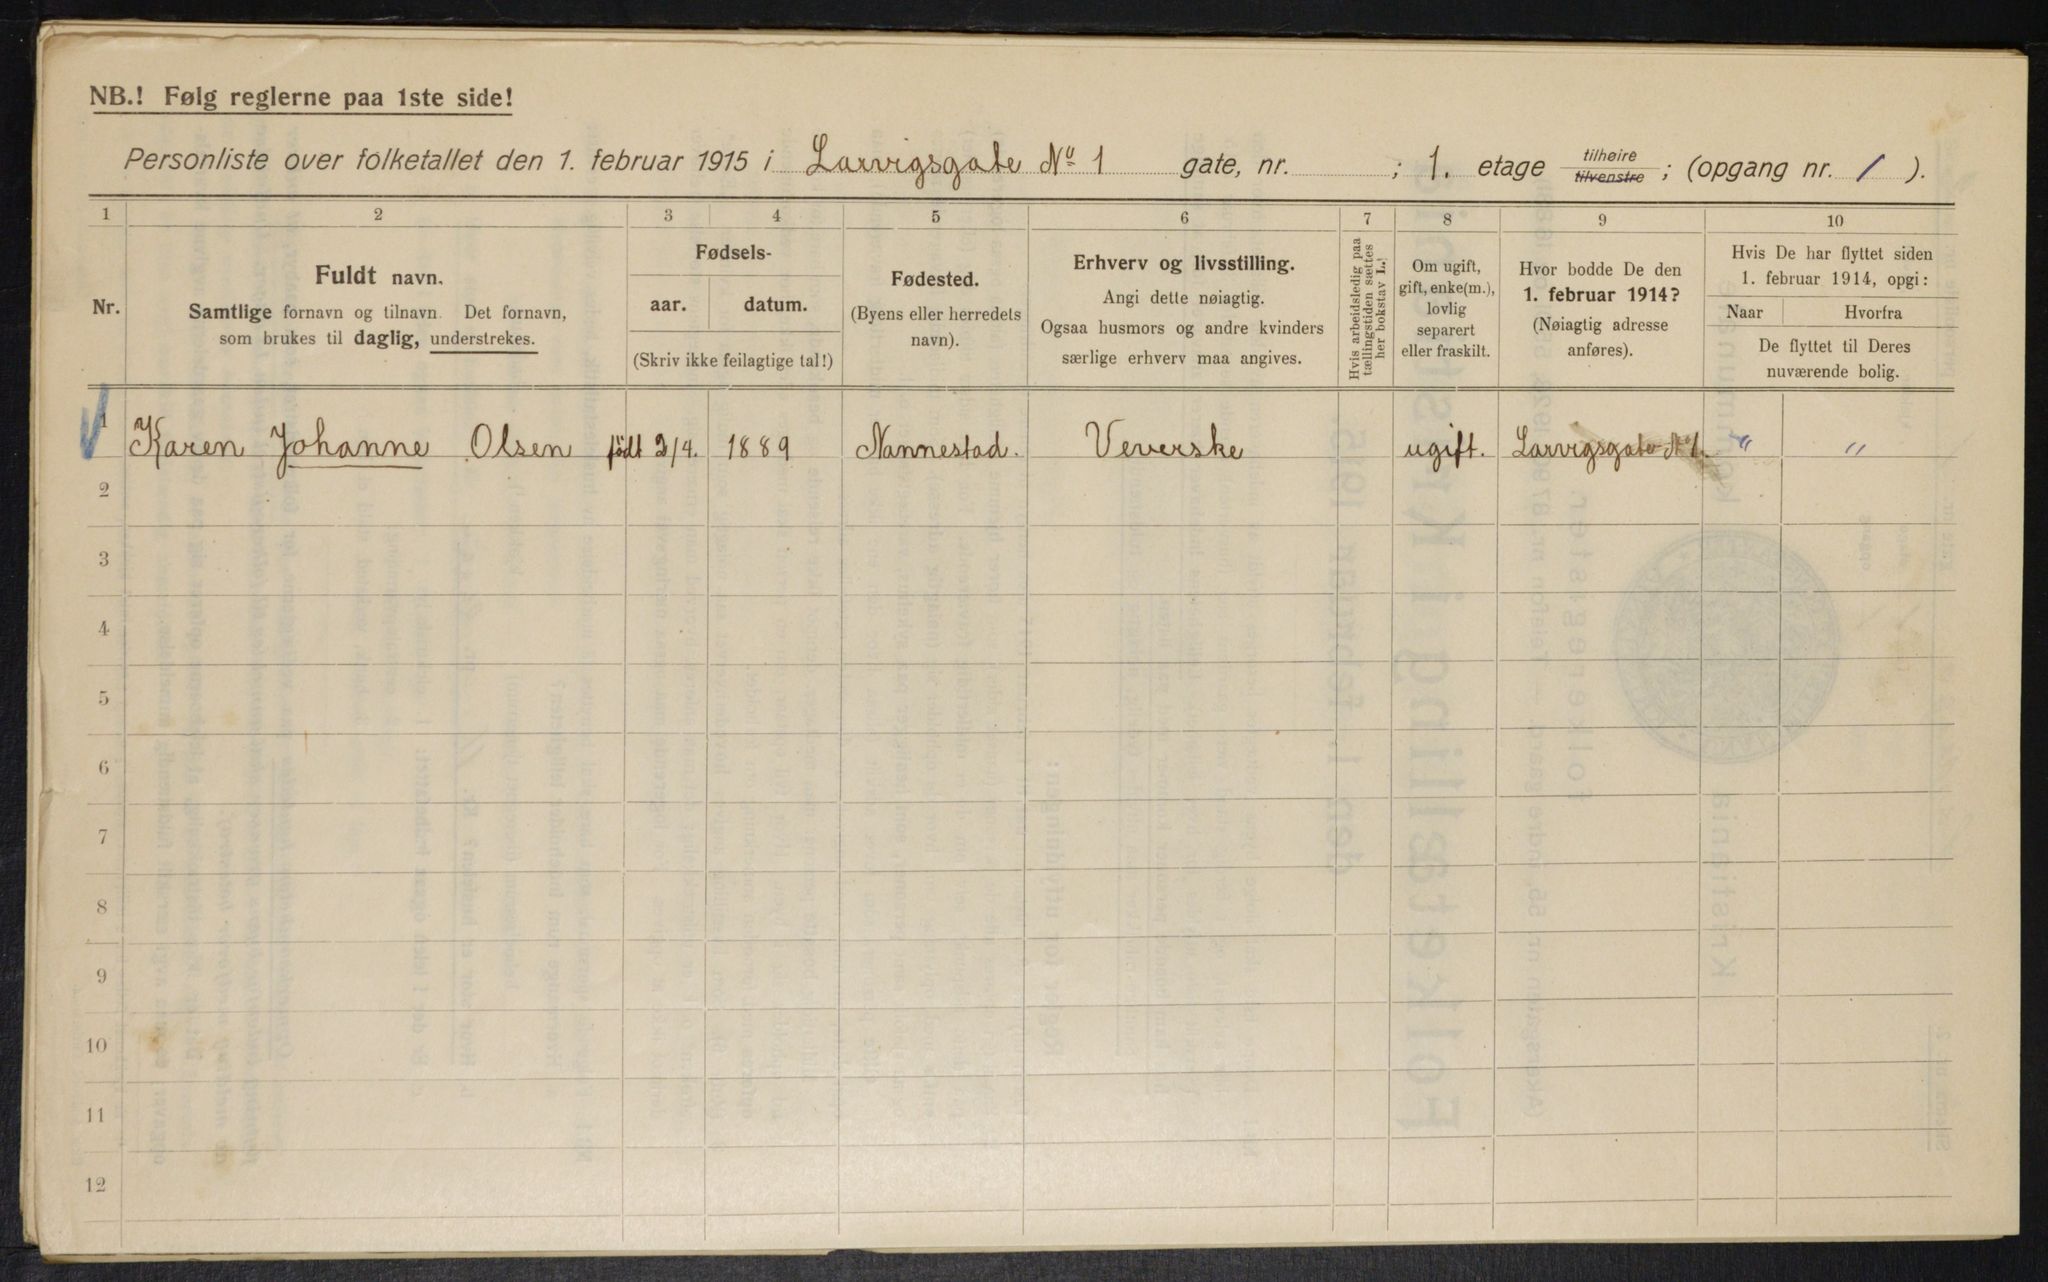 NB.! Følg reglerne paa 1ste side!
Personliste over folketallet den 1. februar 1915 i Larvigsgate No 1 gate, nr. ; 1. etage tilhøire tilvenstre ; (opgang nr. 1 ).
1 2 3 4 5 6 7 8 9 10
Nr.
Fuldt navn.
Samtlige fornavn og tilnavn. Det fornavn,
som brukes til daglig, understrekes.
Fødsels-
aar. datum.
(Skriv ikke feilagtige tal!)
Fødested.
(Byens eller herredets
navn).
Erhverv og livsstilling.
Angi dette nøiagtig.
Ogsaa husmors og andre kvinders
særlige erhverv maa angives.
Hvis arbeidsledig paa
tællingstiden sættes
her bokstav L.!
Om ugift,
gift, enke(m.),
lovlig
separert
eller fraskilt.
Hvor bodde De den
1. februar 1914?
(Nøiagtig adresse
anføres).
Hvis De har flyttet siden
1. februar 1914, opgi:
Naar Hvorfra
De flyttet til Deres
nuværende bolig.
1 Karen Johanne Olsen født 2/4. 1889 Nannestad. Veverske ugift. Larvigsgate No 1. " "
2
3
4
5
6
7
8
9
10
11
12